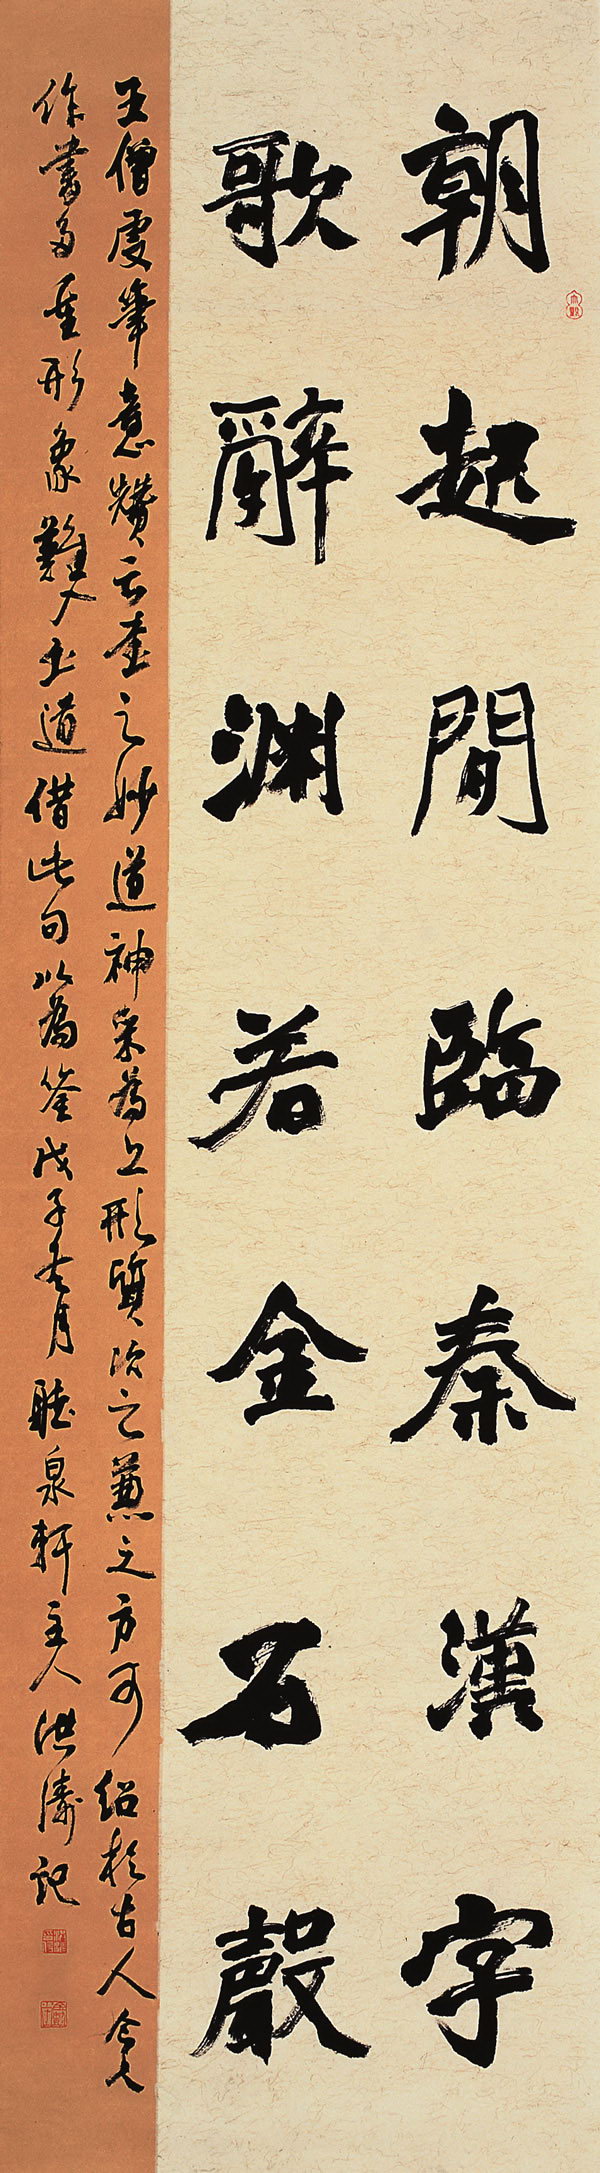 朝起閒臨秦漢字
歌辭淵若金石聲
王僧虔筆意贊云書之妙道神采為上形質次之兼之方可紹於古人今人
作書多重形象難入書道借此句以為箴戊子春月聽泉軒主人洪濤記